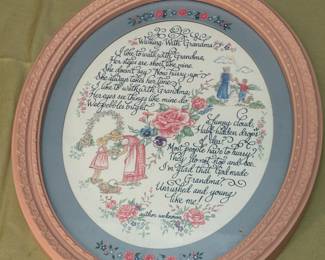 Walking With Grandma
I like to walk with Grandma,
Her steps are short like mine.
She doesn't say "Now hurry up"
She always takes her time.
I like to walk with Grandma,
Her eyes see things like mine do
Wet pebbles bright
A funny cloud,
Half hidden drops
of dew.
Most people have to hurry
They do not stop and see.
I'm glad that God made
Grandma
Unrushed and young
like me!
author unknown